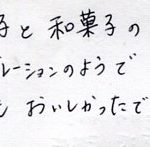 子と 和菓子の
レーションのようで
おいしかったで